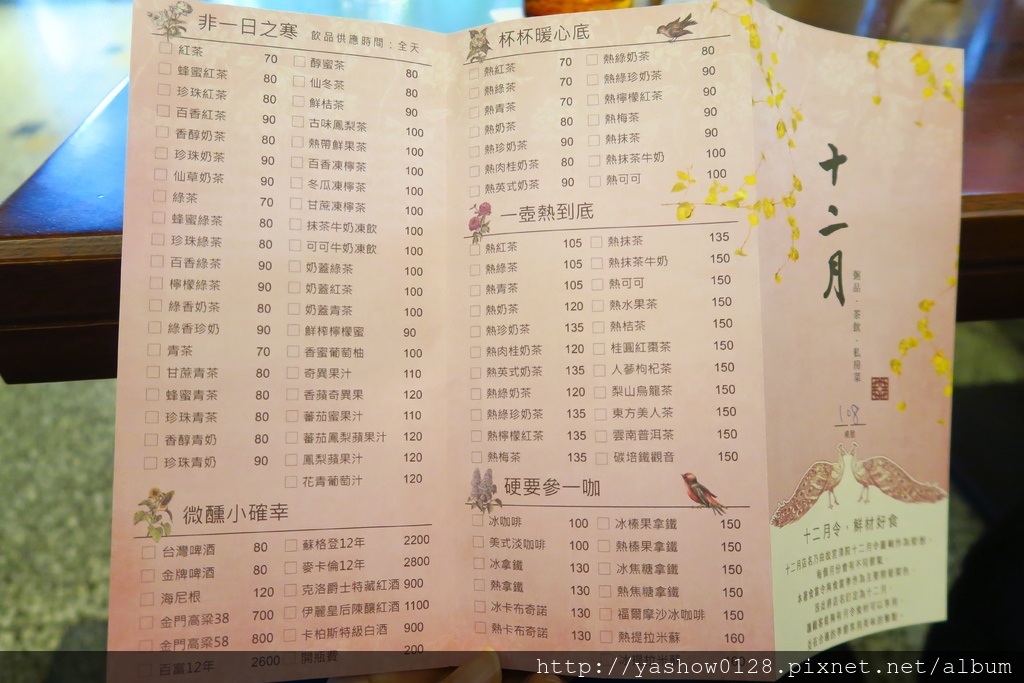 非一日之寒 飲品供應時間：全天
紅茶 70
蜂蜜紅茶 80
珍珠紅茶 80
百香紅茶 90
香醇奶茶 80
珍珠奶茶 90
仙草奶茶 90
綠茶 70
蜂蜜綠茶 80
珍珠綠茶 80
百香綠茶 90
檸檬綠茶 90
綠香奶茶 80
綠香珍奶 90
青茶 70
甘蔗青茶 80
蜂蜜青茶 80
珍珠青茶 80
香醇青奶 80
珍珠青奶 90
醇蜜茶 80
仙冬茶 80
鮮桔茶 90
古味鳳梨茶 100
熱帶鮮果茶 100
百香凍檸茶 100
冬瓜凍檸茶 100
甘蔗凍檸茶 100
抹茶牛奶凍飲 100
可可牛奶凍飲 100
奶蓋綠茶 100
奶蓋紅茶 100
奶蓋青茶 100
鮮榨檸檬蜜 90
香蜜葡萄柚 100
奇異果汁 110
香蘋奇異果 120
蕃茄蜜果汁 110
蕃茄鳳梨蘋果汁 120
鳳梨蘋果汁 120
花青葡萄汁 120
微醺小確幸
台灣啤酒 80
金牌啤酒 80
海尼根 120
金門高粱38 700
金門高粱58 800
百富12年 2600
蘇格登12年 2200
麥卡倫12年 2800
克洛爵士特藏紅酒 900
伊麗皇后陳釀紅酒 1100
卡柏斯特級白酒 900
開瓶費 200
杯杯暖心底
熱紅茶 70
熱綠茶 70
熱青茶 70
熱奶茶 80
熱珍奶茶 90
熱肉桂奶茶 80
熱英式奶茶 90
熱綠奶茶 80
熱綠珍奶茶 90
熱檸檬紅茶 90
熱梅茶 90
熱抹茶 90
熱抹茶牛奶 100
熱可可 100
一壺熱到底
熱紅茶 105
熱綠茶 105
熱青茶 105
熱奶茶 120
熱珍奶茶 135
熱肉桂奶茶 120
熱英式奶茶 135
熱綠奶茶 120
熱綠珍奶茶 135
熱檸檬紅茶 135
熱梅茶 135
熱抹茶 135
熱抹茶牛奶 150
熱可可 150
熱水果茶 150
熱桔茶 150
桂圓紅棗茶 150
人蔘枸杞茶 150
梨山烏龍茶 150
東方美人茶 150
雲南普洱茶 150
碳培鐵觀音 150
硬要參一咖
冰咖啡 100
美式淡咖啡 100
冰拿鐵 130
熱拿鐵 130
冰卡布奇諾 130
熱卡布奇諾 130
冰榛果拿鐵 150
熱榛果拿鐵 150
冰焦糖拿鐵 150
熱焦糖拿鐵 150
福爾摩沙冰咖啡 150
熱提拉米蘇 160
十二月
粥品．茶飲．私房菜
108
十二月令，鮮材好食
http://yashow0128.pixnet.net/album